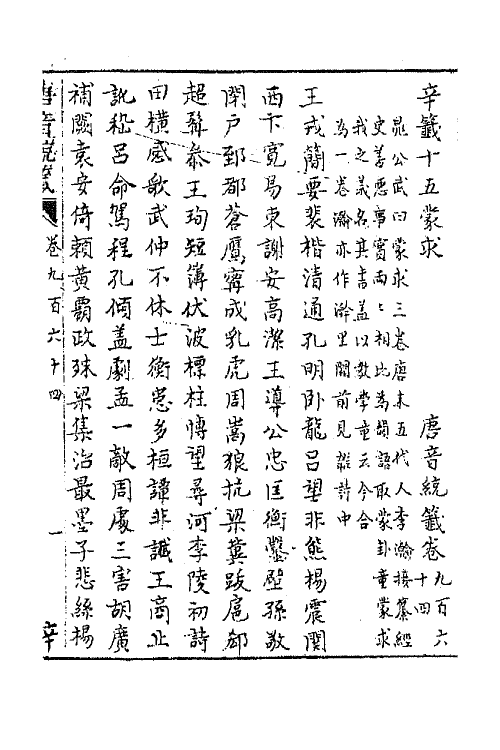 辛籤十五蒙求　唐音統籤卷九百六十四
晁公武曰蒙求三卷唐末五代人李瀚撰纂經
史善惡事實兩〻相比為韻語取蒙卦童蒙求
我之義名其書蓋以教學童云今合
為一卷瀚亦作澣里闕前見雜詩中
王戎簡要裴楷清通孔明臥龍呂望非熊楊震關
西丁寬易東謝安高潔王導公忠匡衡鑿壁孫敬
閉戶郅都蒼鷹甯成乳虎周嵩狼抗梁冀跋扈郗
超髯參王珣短簿伏波標柱博望尋河李陵初詩
田橫感歌武仲不休士衡患多桓譚非讖王商止
訛嵇呂命駕程孔傾蓋劇孟一敵周處三害胡廣
補闕袁安倚賴黃霸政殊梁集治最墨子悲絲楊
唐音統籤
卷九百六十四
一
辛